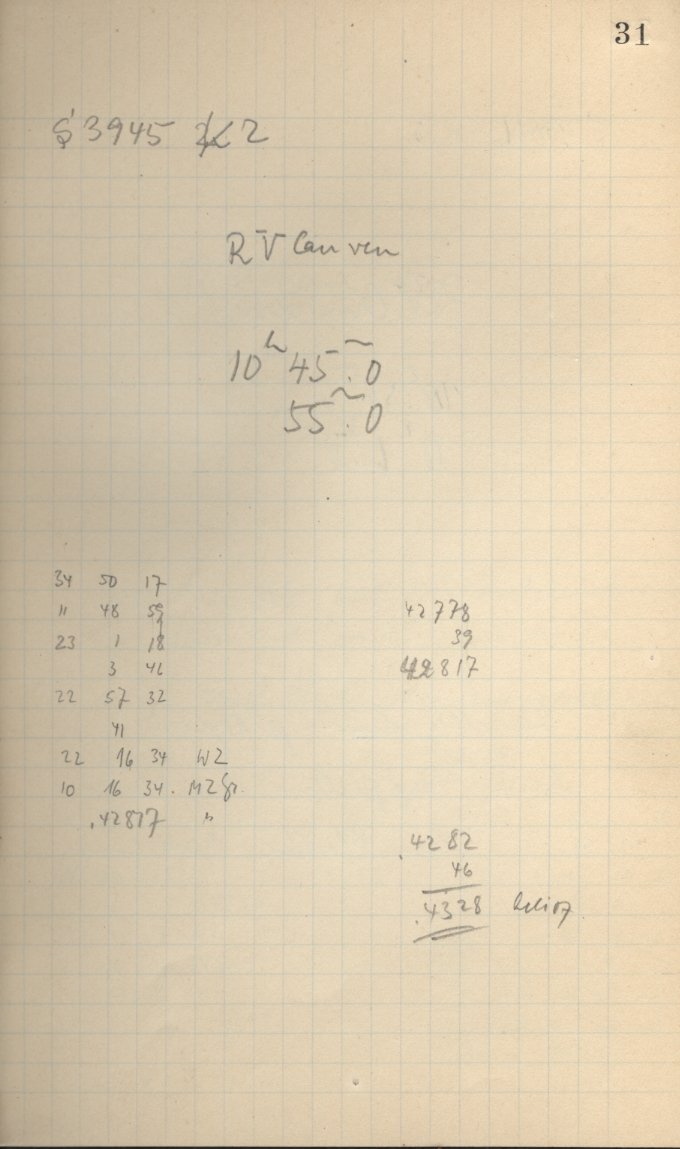 31
§ 3945 2
RV Can ven
10ʰ 45ᵐ.0
55ᵐ.0
34 50 17
11 48 59
23 1 18
3 46
22 57 32
41
22 16 34 WZ
10 16 34. MZGr.
.42817 "
42778
39
42817
.4282
46
.4328